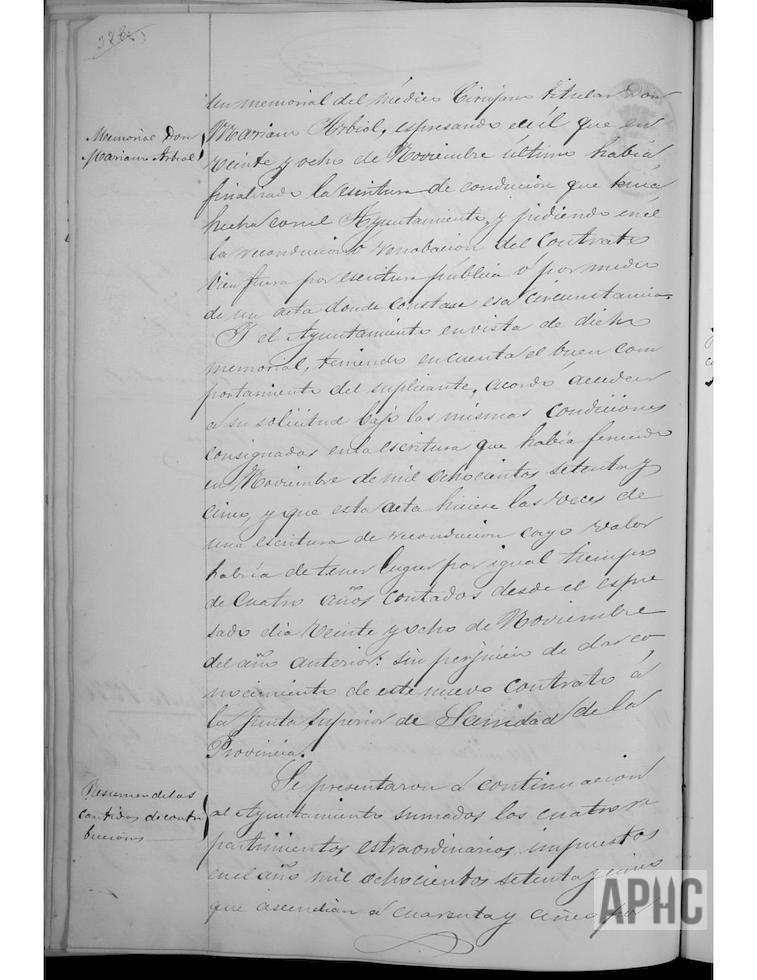 Memorial Don
Mariano Arbiol
un memorial del médico Cirujano titular Don
Mariano Arbiol, espresando en él que en
veinte y ocho de Noviembre último había
finalizado la escritura de condución que tenía
hecha con el Ayuntamiento, y pidiendo en él
la reconducion ó renobacion del Contrato
bien fuera por escritura pública ó por medio
de un acta donde constase esa circunstancia.
Y el Ayuntamiento en vista de dicho
memorial, teniendo en cuenta el buen com
portamiento del suplicante, acordó acceder
á su solicitud bajo las mismas condiciones
consignadas en la escritura que había fenecido
en Noviembre de mil ochocientos setenta y
cinco, y que esta acta hiciese las veces de
una escritura de reconducion cuyo valor
habría de tener lugar por igual tiempo
de cuatro años contados desde el espre
sado dia veinte y ocho de Noviembre
del año anterior: sin perjuicio de dar co
nocimiento de este nuevo contrato á
la Junta Superior de Sanidad de la
Provincia.
Resumen de las
cantidas de contri
buciones
Se presentaron á continuación
al Ayuntamiento sumados los cuatro re
partimientos estraordinarios impuestos
en el año mil ochocientos setenta y cinco
que ascendian á cuarenta y cinco
APHC